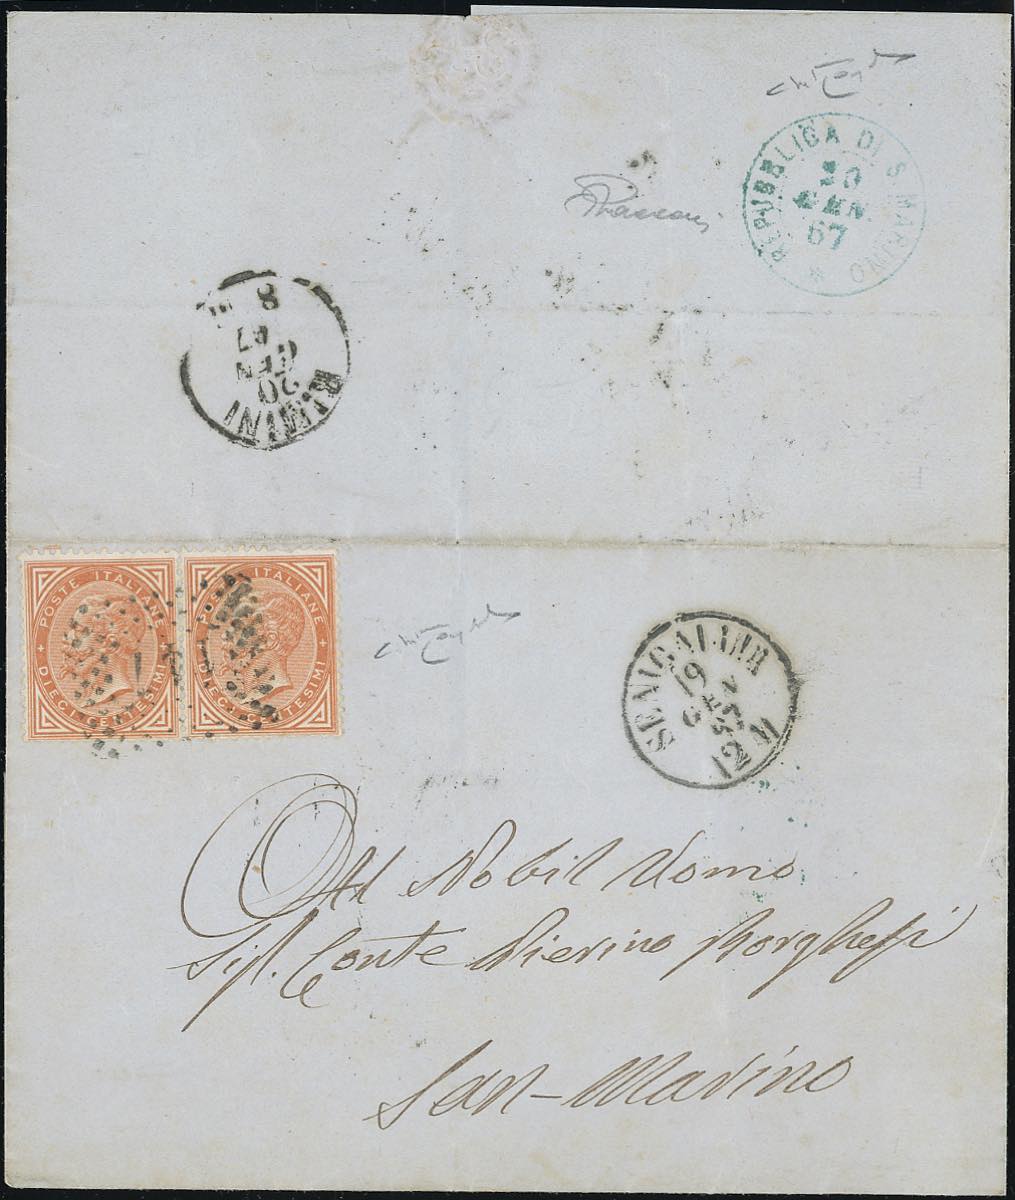 REPUBBLICA DI S. MARINO *
GEN
67
RIMINI
20
GEN
67
8
POSTE ITALIANE
+ DIECI CENTESIMI +
POSTE ITALIANE
+ DIECI CENTESIMI +
SENIGALLIA
19
GEN
67
12 M
Al Nobil Uomo
Sig. Conte Pierino Borghesi
San-Marino